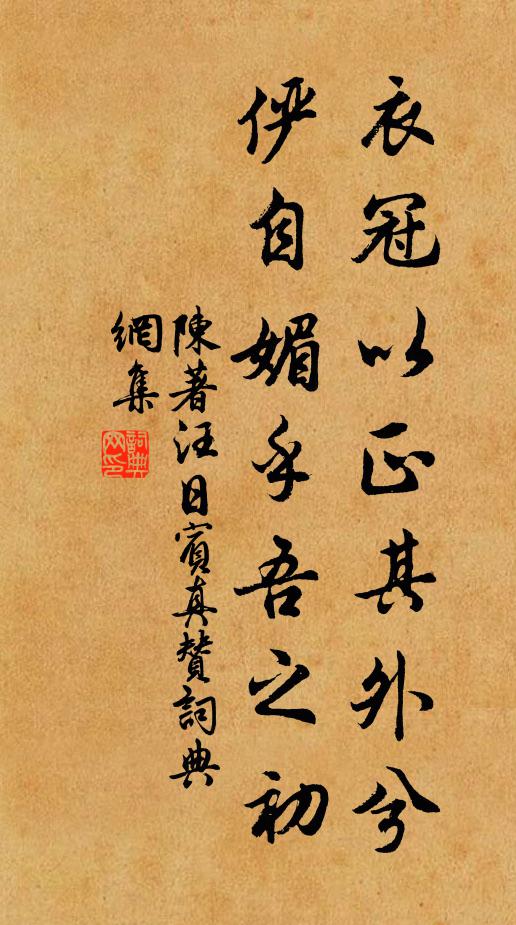 衣冠以正其外兮
俨自媚乎吾之初
陳著汪日賓真贊詞典
網集
詞典網印